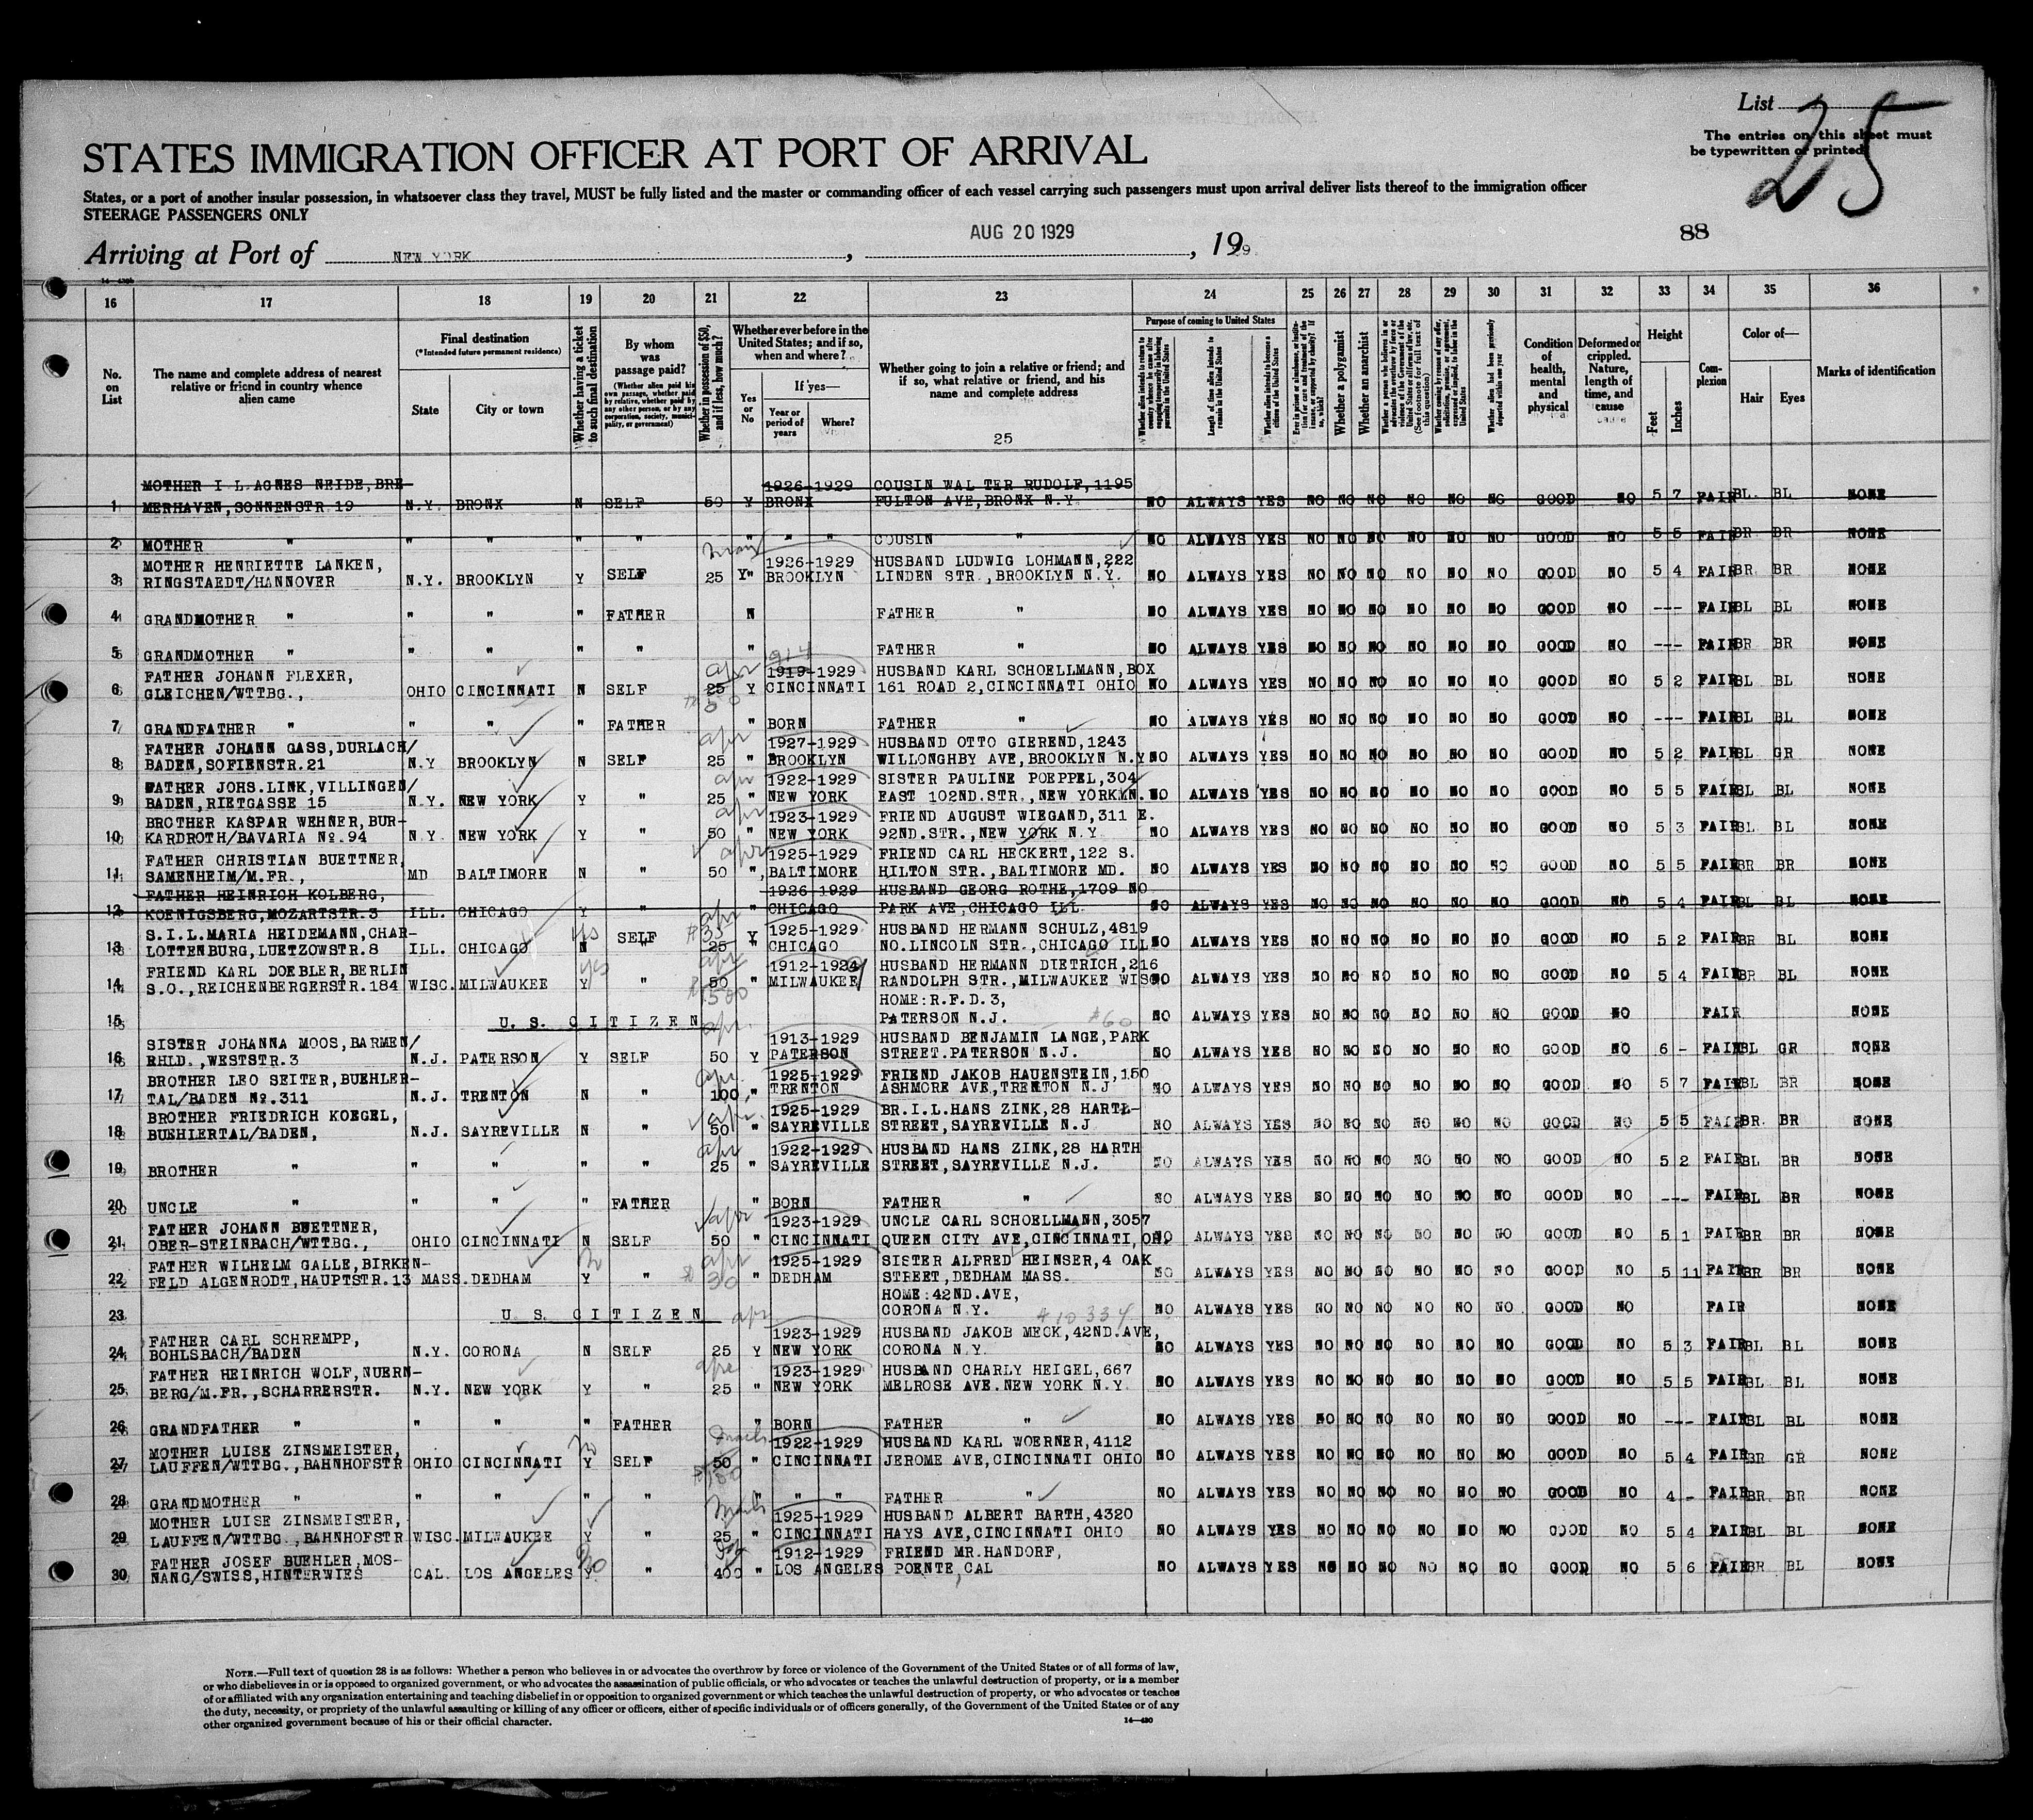 List
25
The entries on this sheet must
be typewritten or printed
STATES IMMIGRATION OFFICER AT PORT OF ARRIVAL
States, or a port of another insular possession, in whatsoever class they travel, MUST be fully listed and the master or commanding officer of each vessel carrying such passengers must upon arrival deliver lists thereof to the immigration officer
STEERAGE PASSENGERS ONLY
88
Arriving at Port of NEW YORK, AUG 20 1929, 1929
16 17 18 19 20 21 22 23 24 25 26 27 28 29 30 31 32 33 34 35 36
No. on List
The name and complete address of nearest relative or friend in country whence alien came
Final destination
(*Intended future permanent residence)
State
City or town
Whether having a ticket to such final destination
By whom was passage paid?
(Whether alien paid his own passage, whether paid by relative, whether paid by any other person, or by any corporation, society, municipality, or government)
Whether in possession of $50, and if less, how much?
Whether ever before in the United States; and if so, when and where?
Yes or No
If yes—
Year or period of years
Where?
Whether going to join a relative or friend; and if so, what relative or friend, and his name and complete address
25
Purpose of coming to United States
Length of time alien intends to remain in the United States
Whether alien intends to become a citizen of the United States
Whether a polygamist
Whether an anarchist
Condition of health, mental and physical
Deformed or crippled. Nature, length of time, and cause
Height
Feet
Inches
Complexion
Color of—
Hair
Eyes
Marks of identification
MOTHER I L.AGNES NEIDE,BRE- 1926-1929 COUSIN WALTER RUDOLF,1195
1 MERHAVEN,SONNENSTR 19 N.Y. BRONX N SELF 50 Y BRONX FULTON AVE,BRONX N.Y. NO ALWAYS YES NO NO NO NO NO NO GOOD NO 5 7 FAIR BL. BL NONE
2 MOTHER " " " " " " " " COUSIN " NO ALWAYS YES NO NO NO NO NO NO GOOD NO 5 5 FAIR BR BR NONE
MOTHER HENRIETTE LANKEN, 1926-1929 HUSBAND LUDWIG LOHMANN,222
3 RINGSTAEDT/HANNOVER N.Y. BROOKLYN Y SELF 25 Y" BROOKLYN LINDEN STR.,BROOKLYN N.Y. NO ALWAYS YES NO NO NO NO NO NO GOOD NO 5 4 FAIR BR. BR NONE
4 GRANDMOTHER " " " " FATHER N FATHER " NO ALWAYS YES NO NO NO NO NO NO GOOD NO --- FAIR BL BL NONE
5 GRANDMOTHER " " " " " " FATHER " NO ALWAYS YES NO NO NO NO NO NO GOOD NO --- FAIR BR BR NONE
914
FATHER JOHANN FLEXER, apr 1919-1929 HUSBAND KARL SCHOELLMANN,BOX
6 GLEICHEN/WTTBG., OHIO CINCINNATI N SELF 25 Y CINCINNATI 161 ROAD 2,CINCINNATI OHIO NO ALWAYS YES NO NO NO NO NO NO GOOD NO 5 2 FAIR BL BL NONE
50
7 GRANDFATHER " " " " FATHER " BORN FATHER " NO ALWAYS YES NO NO NO NO NO NO GOOD NO --- FAIR BL BL NONE
FATHER JOHANN GASS,DURLACH/ apr 1927-1929 HUSBAND OTTO GIEREND,1243
8 BADEN,SOFIENSTR.21 N.Y BROOKLYN N SELF 25 " BROOKLYN WILLONGHBY AVE,BROOKLYN N.Y NO ALWAYS YES NO NO NO NO NO NO GOOD NO 5 2 FAIR BL GR NONE
FATHER JOHS.LINK,VILLINGEN/ apr 1922-1929 SISTER PAULINE POEPPEL,304
9 BADEN,RIETGASSE 15 N.Y. NEW YORK Y " 25 " NEW YORK EAST 102ND.STR.,NEW YORK N. NO ALWAYS YES NO NO NO NO NO NO GOOD NO 5 5 FAIR BL BL NONE
BROTHER KASPAR WEHNER,BUR- apr 1923-1929 FRIEND AUGUST WIEGAND,311 E.
10 KARDROTH/BAVARIA No.94 N.Y. NEW YORK Y " 50 " NEW YORK 92ND.STR.,NEW YORK N Y NO ALWAYS YES NO NO NO NO NO NO GOOD NO 5 3 FAIR BL BL NONE
FATHER CHRISTIAN BUETTNER, apr 1925-1929 FRIEND CARL HECKERT,122 S.
11 SAMENHEIM/M.FR., MD BALTIMORE N " 50 " BALTIMORE HILTON STR.,BALTIMORE MD. NO ALWAYS YES NO NO NO NO NO NO GOOD NO 5 5 FAIR BR BR NONE
FATHER HEINRICH KOLBERG, 1926-1929 HUSBAND GEORG ROTHE,1709 NO
12 KOENIGSBERG,MOZARTSTR.3 ILL. CHICAGO Y " " CHICAGO PARK AVE,CHICAGO ILL NO ALWAYS YES NO NO NO NO NO NO GOOD NO 5 4 FAIR BL BL NONE
S.I.L.MARIA HEIDEMANN,CHAR- yes $35 1925-1929 HUSBAND HERMANN SCHULZ,4819
13 LOTTENBURG,LUETZOWSTR.8 ILL. CHICAGO N SELF 25 Y " CHICAGO NO.LINCOLN STR.,CHICAGO ILL NO ALWAYS YES NO NO NO NO NO NO GOOD NO 5 2 FAIR BR BL NONE
FRIEND KARL DOEBLER,BERLIN yes apr 1912-1924 HUSBAND HERMANN DIETRICH,216
14 S.O.,REICHENBERGERSTR.184 WISC. MILWAUKEE Y " 50 " MILWAUKEE RANDOLPH STR.,MILWAUKEE WISC NO ALWAYS YES NO NO NO NO NO NO GOOD NO 5 4 FAIR BR. BL NONE
HOME:R.F.D.3,
15 U. S. CITIZEN PATERSON N.J. #60 NO ALWAYS YES NO NO NO NO NO NO GOOD NO FAIR NONE
SISTER JOHANNA MOOS,BARMEN/ 1913-1929 HUSBAND BENJAMIN LANGE,PARK
16 RHLD.,WESTSTR.3 N.J. PATERSON Y SELF 50 Y PATERSON STREET.PATERSON N.J. NO ALWAYS YES NO NO NO NO NO NO GOOD NO 6 - FAIR BL GR NONE
BROTHER LEO SEITER,BUEHLER- apr. 1925-1929 FRIEND JAKOB HAUENSTEIN,150
17 TAL/BADEN No.311 N.J. TRENTON N " 100 " TRENTON ASHMORE AVE,TRENTON N.J NO ALWAYS YES NO NO NO NO NO NO GOOD NO 5 7 FAIR BL BR NONE
BROTHER FRIEDRICH KOEGEL, apr. 1925-1929 BR.I.L.HANS ZINK,28 HARTL-
18 BUEHLERTAL/BADEN, N.J. SAYREVILLE N " 50 " SAYREVILLE STREET,SAYREVILLE N.J NO ALWAYS YES NO NO NO NO NO NO GOOD NO 5 5 FAIR BR. BR NONE
apr 1922-1929 HUSBAND HANS ZINK,28 HARTH
19 BROTHER " " " " " 25 " SAYREVILLE STREET,SAYREVILLE N.J. NO ALWAYS YES NO NO NO NO NO NO GOOD NO 5 2 FAIR BL BR NONE
20 UNCLE " " " " FATHER " BORN FATHER " NO ALWAYS YES NO NO NO NO NO NO GOOD NO --- FAIR BL BR NONE
FATHER JOHANN BUETTNER, apr 1923-1929 UNCLE CARL SCHOELLMANN,3057
21 OBER-STEINBACH/WTTBG., OHIO CINCINNATI N SELF 50 " CINCINNATI QUEEN CITY AVE,CINCINNATI,OH. NO ALWAYS YES NO NO NO NO NO NO GOOD NO 5 1 FAIR BR BR NONE
FATHER WILHELM GALLE,BIRKEN- no apr 1925-1929 SISTER ALFRED HEINSER,4 OAK
22 FELD ALGENRODT,HAUPTSTR.13 MASS. DEDHAM Y " $30 " DEDHAM STREET,DEDHAM MASS. NO ALWAYS YES NO NO NO NO NO NO GOOD NO 5 11 FAIR BR BR NONE
HOME:42ND.AVE,
23 U. S. CITIZEN apr CORONA N.Y. #10334 NO ALWAYS YES NO NO NO NO NO NO GOOD NO FAIR NONE
FATHER CARL SCHREMPP, 1923-1929 HUSBAND JAKOB MECK,42ND.AVE,
24 BOHLSBACH/BADEN N.Y. CORONA N SELF 25 Y NEW YORK CORONA N.Y. NO ALWAYS YES NO NO NO NO NO NO GOOD NO 5 3 FAIR BL BL NONE
FATHER HEINRICH WOLF,NUERN- apr 1923-1929 HUSBAND CHARLY HEIGEL,667
25 BERG/M.FR.,SCHARRERSTR. N.Y. NEW YORK Y " 25 " NEW YORK MELROSE AVE.NEW YORK N.Y NO ALWAYS YES NO NO NO NO NO NO GOOD NO 5 5 FAIR BL BL NONE
26 GRANDFATHER " " " " FATHER " BORN FATHER " NO ALWAYS YES NO NO NO NO NO NO GOOD NO --- FAIR BL BL NONE
MOTHER LUISE ZINSMEISTER, no 1922-1929 HUSBAND KARL WOERNER,4112
27 LAUFFEN/WTTBG.,BAHNHOFSTR OHIO CINCINNATI Y SELF 50 " CINCINNATI JEROME AVE,CINCINNATI OHIO NO ALWAYS YES NO NO NO NO NO NO GOOD NO 5 4 FAIR BR GR NONE
28 GRANDMOTHER " " " " " " " " FATHER " NO ALWAYS YES NO NO NO NO NO NO GOOD NO 4 - FAIR BR. BR NONE
MOTHER LUISE ZINSMEISTER, 1925-1929 HUSBAND ALBERT BARTH,4320
29 LAUFFEN/WTTBG.,BAHNHOFSTR WISC. MILWAUKEE Y " 25 " CINCINNATI HAYS AVE,CINCINNATI OHIO NO ALWAYS YES NO NO NO NO NO NO GOOD NO 5 4 FAIR BL BL NONE
FATHER JOSEF BUEHLER,MOS- no 1912-1929 FRIEND MR.HANDORF,
30 NANG/SWISS,HINTERWIES CAL. LOS ANGELES Y " 400 " LOS ANGELES POENTE,CAL NO ALWAYS YES NO NO NO NO NO NO GOOD NO 5 6 FAIR BR BL NONE
NOTE.—Full text of question 28 is as follows: Whether a person who believes in or advocates the overthrow by force or violence of the Government of the United States or of all forms of law,
or who disbelieves in or is opposed to organized government, or who advocates the assassination of public officials, or who advocates or teaches the unlawful destruction of property, or is a member
of or affiliated with any organization entertaining and teaching disbelief in or opposition to organized government or which teaches the unlawful destruction of property, or who advocates or teaches
the duty, necessity, or propriety of the unlawful assaulting or killing of any officer or officers, either of specific individuals or of officers generally, of the Government of the United States or of any
other organized government because of his or their official character.
14—430